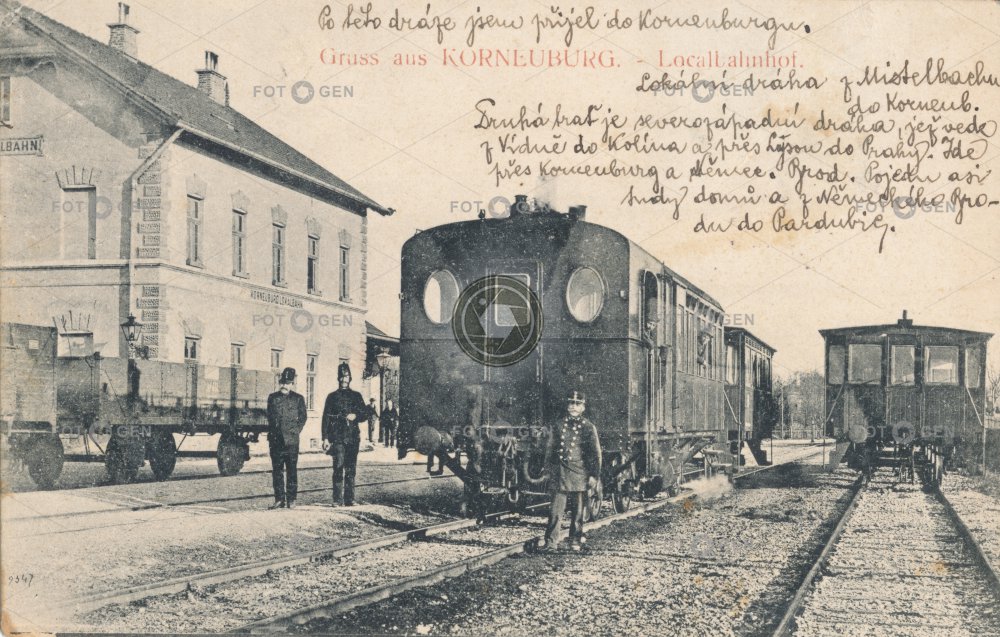 Po této dráze jsem přijel do Korneuburgu.
Gruss aus KORNEUBURG. - Localbahnhof.
Lokální dráha z Mistelbachu
do Korneub.
Druhá trať je severozápadní dráha, jež vede
z Vídně do Kolína a přes Lysou do Prahy. Jde
přes Korneuburg a Německ. Brod. Pojedu asi
tudy domů a z Německého Bro-
du do Pardubic.
ALBAHN
KORNEUBURG LOKALBAHN
FOTOGEN
9347